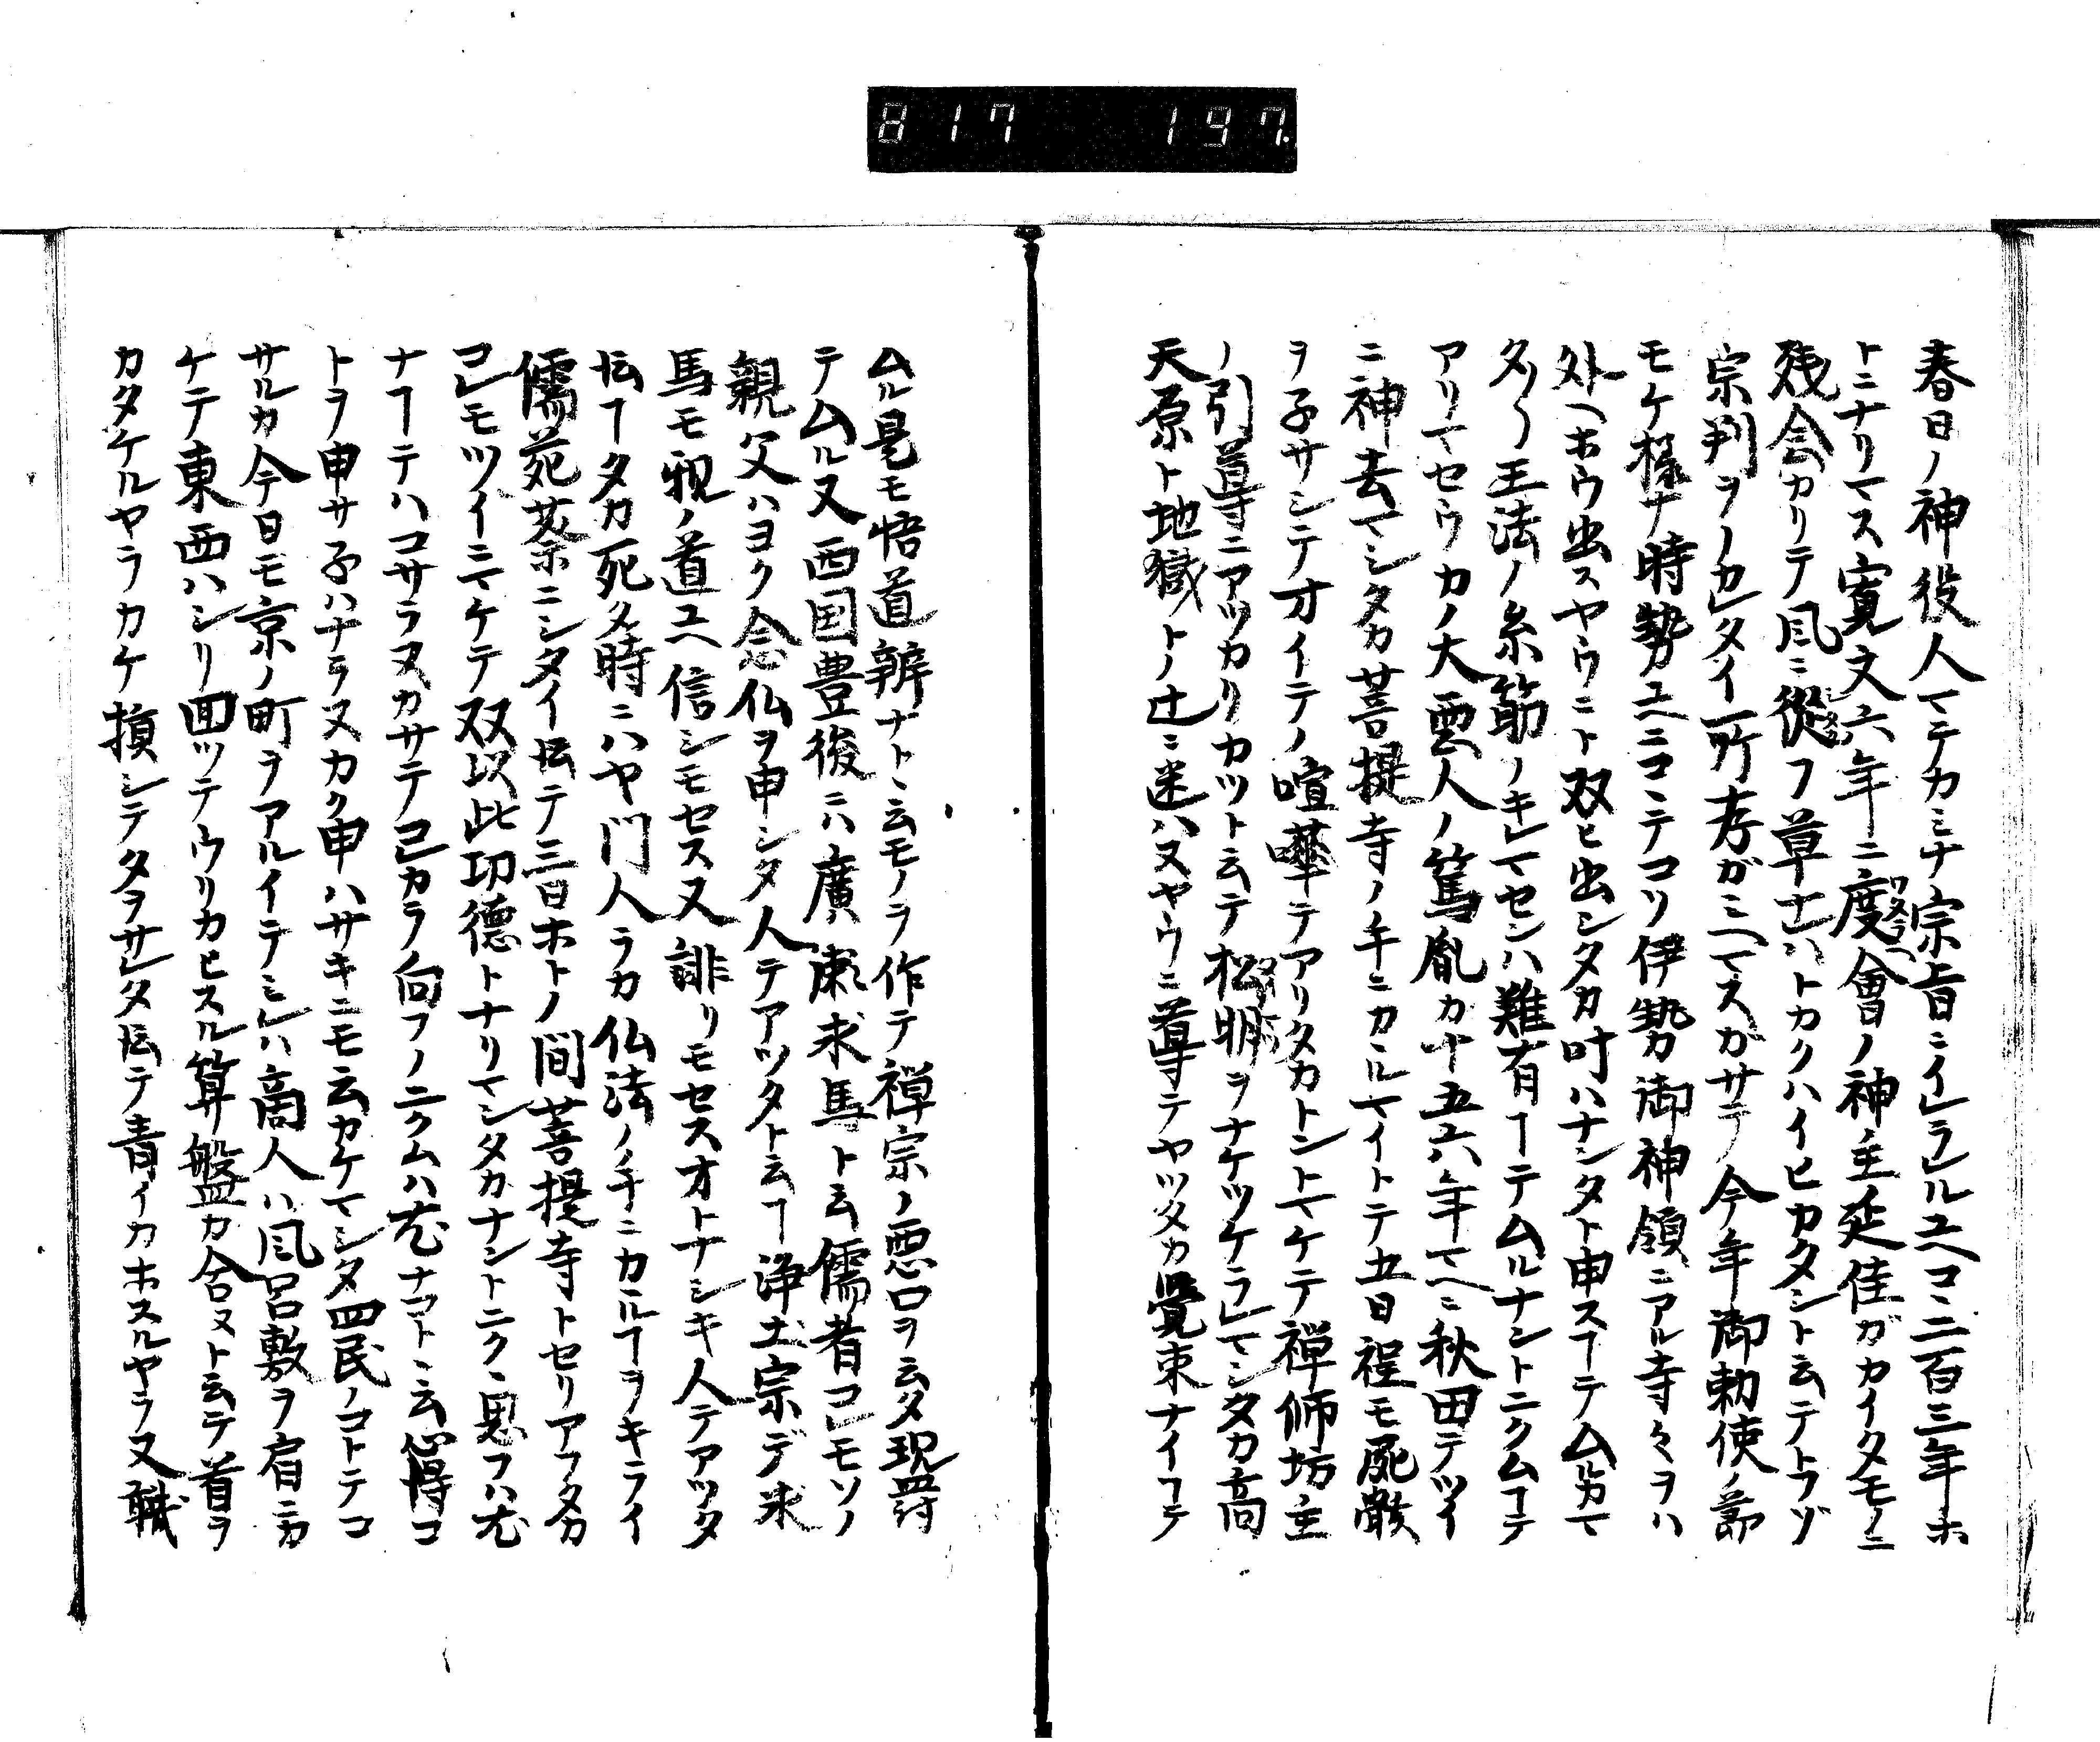 817 197.
春日ノ神役人マテカミナ宗旨ニイレラレルユヘコヽ二百三年ホ
トニナリマス寛文六年ニ度會ノ神主延佳ガカイタモノニ
残念カリテ風ニ從フ草ナレハトカクハイヒカタシト云テトフゾ
宗判ヲノカレタイ所存ガミヘマスカサテ今年御勅使ノ節
モケ様ナ時勢ユヘニコヽテコソ伊勢御神領ニアル寺々ヲハ
外ヘホウ出スヤウニト双ヒ出シタカ叶ハナンタト申スヿテムルカマ
タ〳〵王法ノ糸筋ノキレマセンハ難有ヿテムルナントニクムヿテ
アリマセウカノ大雲人ノ篤胤カ十五六年マヘニ秋田テツイ
ニ神去マシタカ菩提寺ノ手ニカヽルマイトテ五日程モ死骸
ヲ子サシテオイテノ喧嘩テアリタカトントマケテ禅師坊主
ノ引導ニアツカリカツト云テ松明ヲナケツケラレマシタカ高
天原ト地獄トノ辻ニ迷ハヌヤウニ導テヤツタカ覺束ナイヿテ
ムル是モ悟道辨ナトヽ云モノヲ作テ禅宗ノ悪口ヲ云タ現罸
テムル又西国豊後ニハ廣瀬求馬ト云儒者コレモソノ
親父ハヨク念仏ヲ申シタ人テアツタト云ヿ浄土宗デ求
馬モ親ノ道ユヘ信シモセス又誹リモセスオトナシキ人テアツタ
伝ヿタカ死タ時ニハヤ門人ラカ仏法ノ手ニカヽルヿヲキライ
儒葬ニシタイ伝テ三日ホトノ間菩提寺トセリアフタカ
コレモツイニマケテ双以此功德トナリマシタカナントニクヽ思フハ尤
ナヿテハコサラヌカサテ己カラノ向フノニクムハ尤ナヿトヽ云心得コ
トヲ申サ子ハナラヌカク申ハサキニモ云カケマシタ四民ノコトテコ
サルカ今日モ京ノ町ヲアルイテミレハ商人ハ風呂敷ヲ肩ニカ
ケテ東西ハシリ回ツテウリカヒスル算盤カ合ヌト云テ首ヲ
カタケルヤラカケ損シテタヲサレタ伝テ青イカホスルヤラ又職